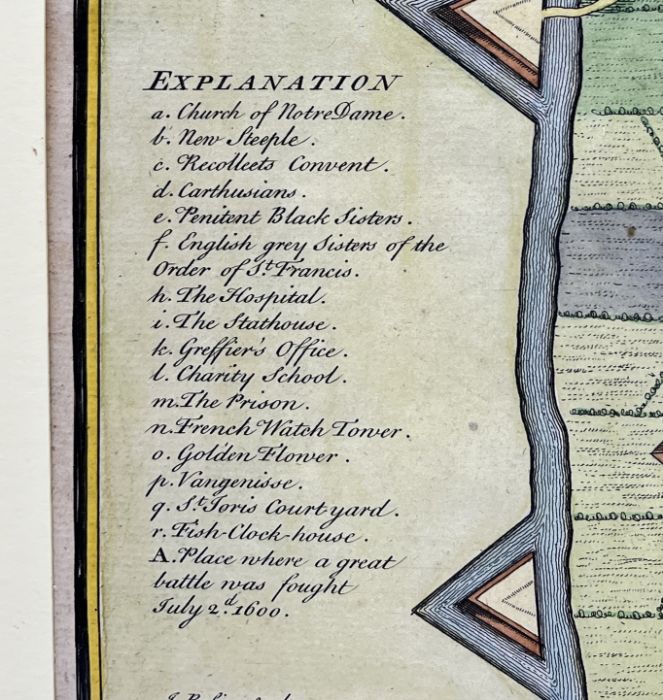 EXPLANATION
a. Church of Notre Dame.
b. New Steeple.
c. Recollects Convent.
d. Carthusians.
e. Penitent Black Sisters.
f. English grey Sisters of the
Order of St. Francis.
h. The Hospital.
i. The Stathouse.
k. Greffier's Office.
l. Charity School.
m. The Prison.
n. French Watch Tower.
o. Golden Flower.
p. Vangenisse.
q. St. Joris Court yard.
r. Fish-Clock-house.
A. Place where a great
battle was fought
July 2d. 1600.